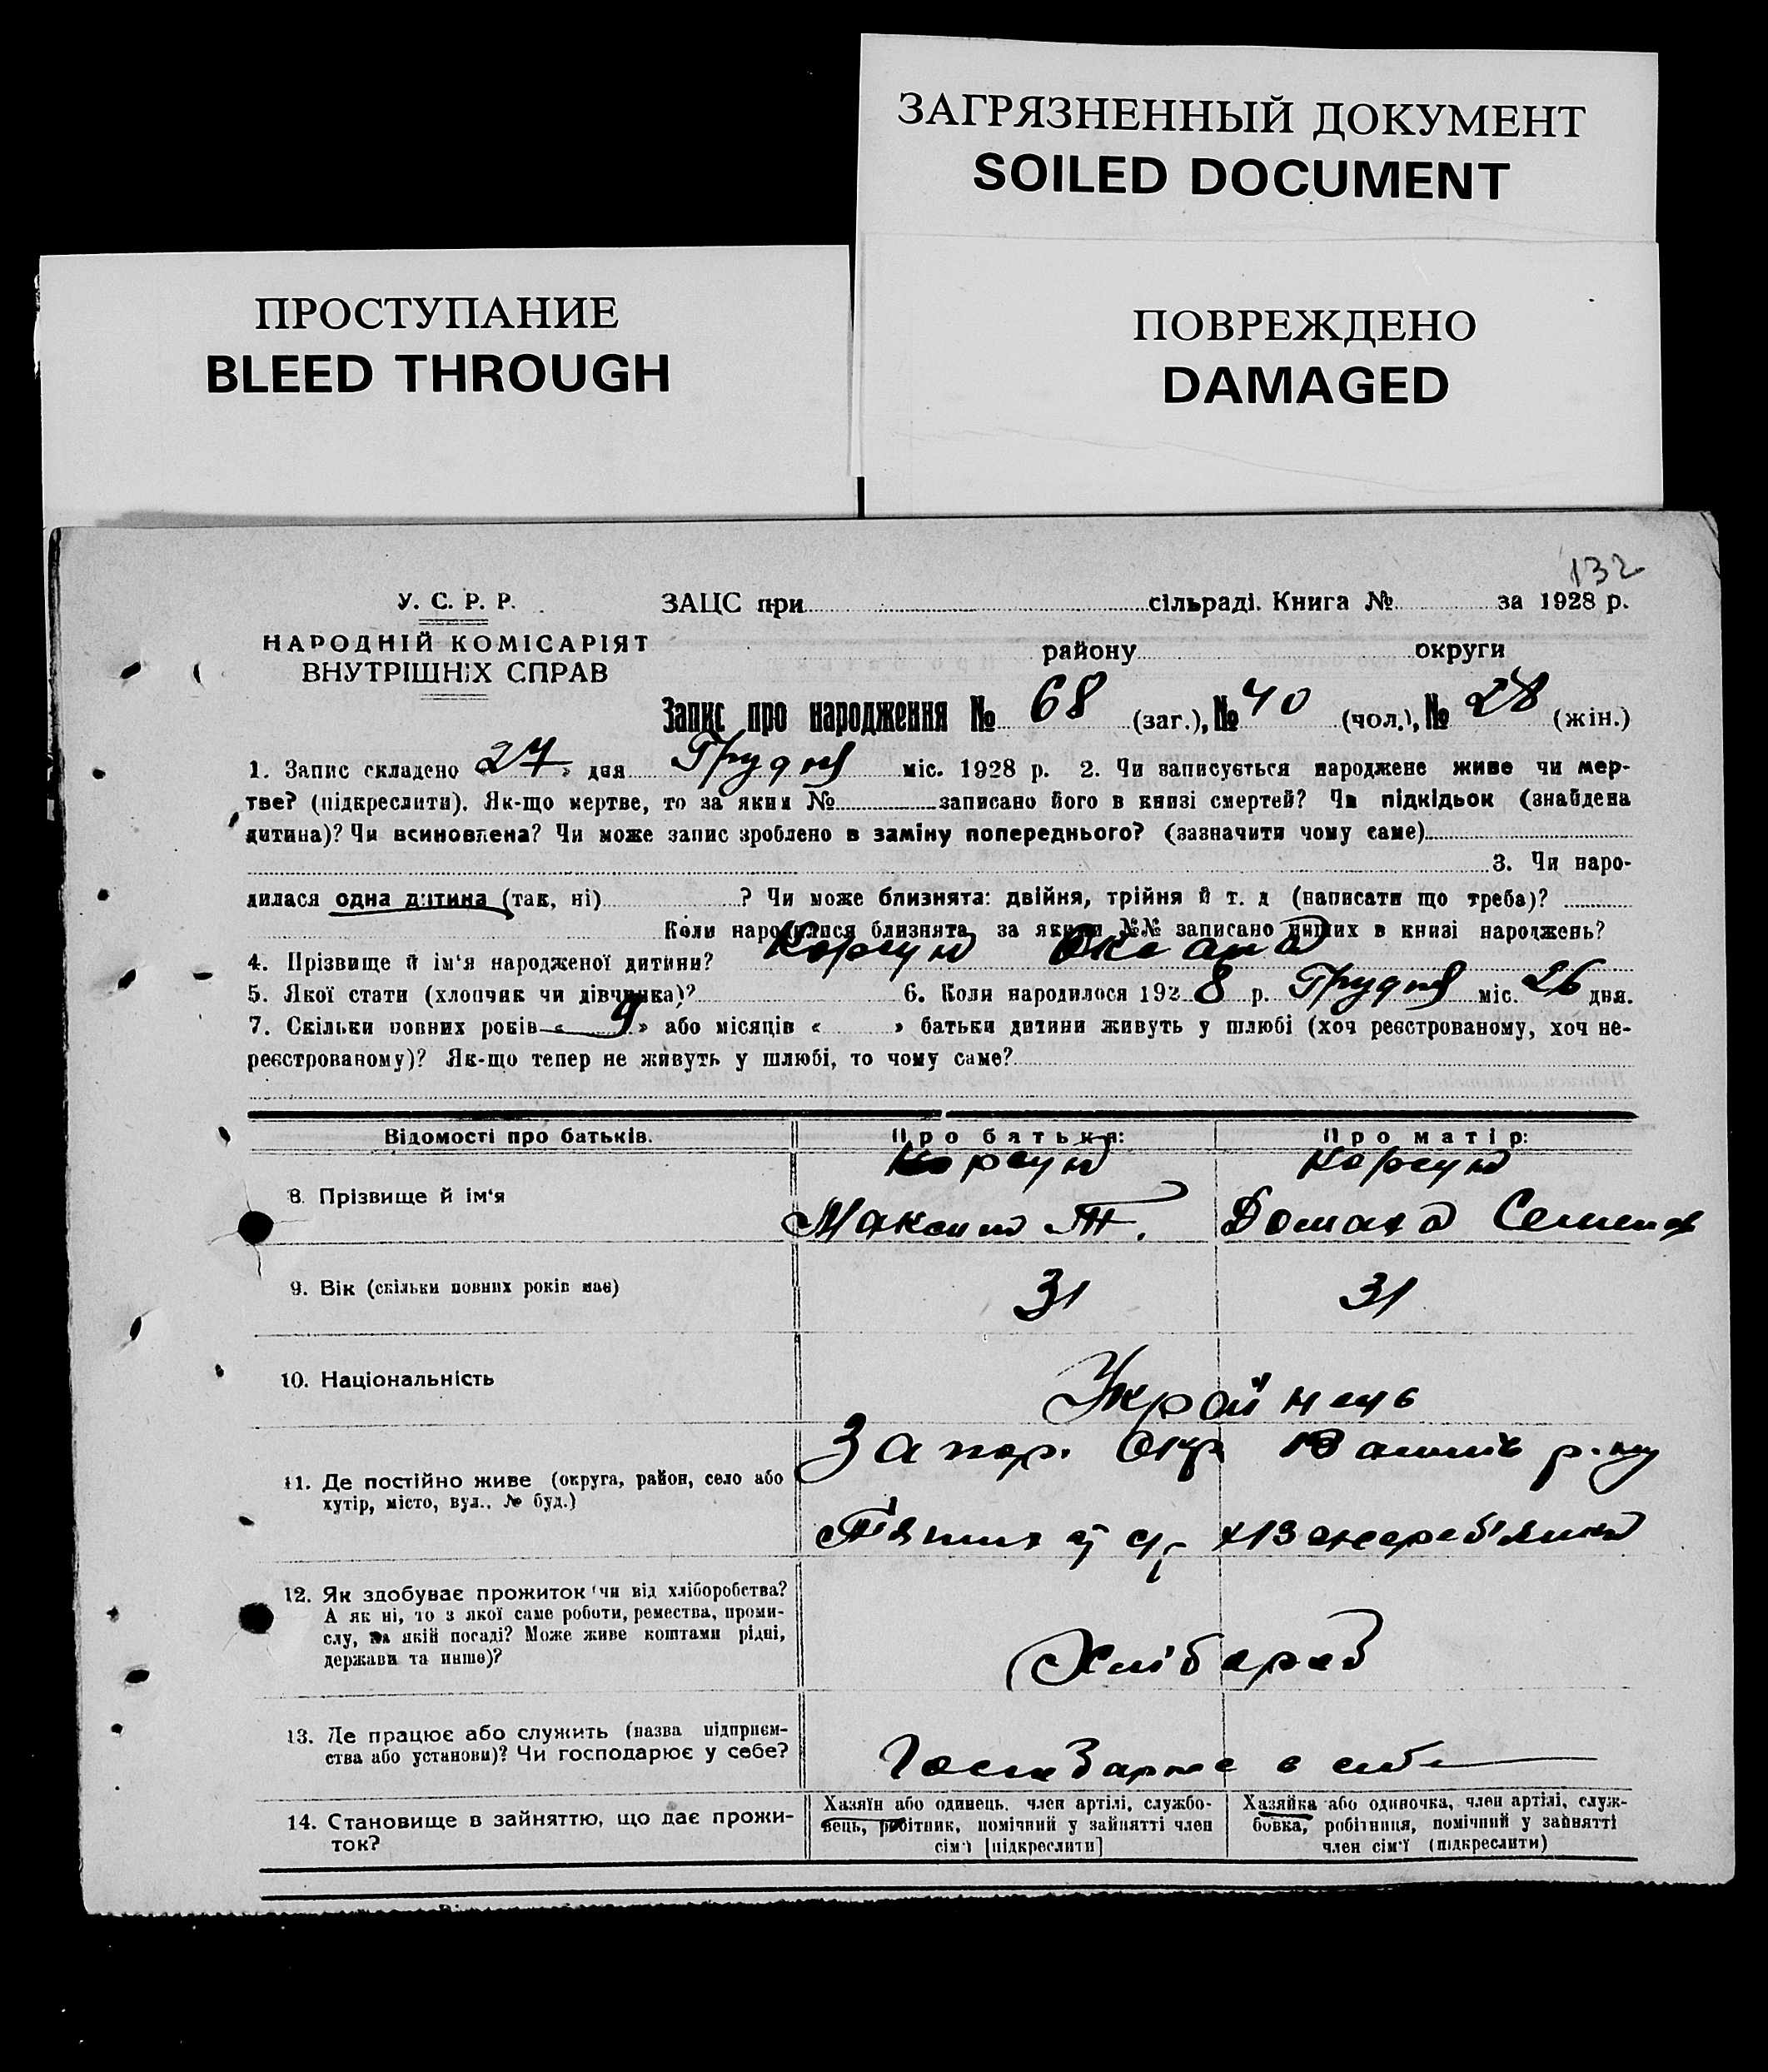 ЗАГРЯЗНЕННЫЙ ДОКУМЕНТ
SOILED DOCUMENT
ПРОСТУПАНИЕ
BLEED THROUGH
ПОВРЕЖДЕНО
DAMAGED
132
У. С. Р. Р.
НАРОДНІЙ КОМІСАРІЯТ
ВНУТРІШНІХ СПРАВ
ЗАЦС при сільраді. Книга № за 1928 р.
району округи
Запис про народження № 68 (заг.), № 40 (чол.), № 28 (жін.)
1. Запис складено « 27 » дня Грудня міс. 1928 р. 2. Чи записується народжене живе чи мер-
тве? (підкреслити). Як-що мертве, то за яким № записано його в книзі смертей? Чи підкідьок (знайдена
дитина)? Чи всиновлена? Чи може запис зроблено в заміну попереднього? (зазначити чому саме)
3. Чи наро-
дилася одна дитина (так, ні) ? Чи може близнята: двійня, трійня й т. д (написати що треба)?
Коли народилися близнята, за якими №№ записано инших в книзі народжень?
4. Прізвище й ім‘я народженої дитини? Корсун
5. Якої стати (хлопчик чи дівчинка)? 6. Коли народилося 192 8 р. Грудня міс. 26 дня.
7. Скільки повних років « 9 » або місяців « » батьки дитини живуть у шлюбі (хоч реєстрованому, хоч не-
реєстрованому)? Як-що тепер не живуть у шлюбі, то чому саме?
Відомості про батьків. Про батька: Про матір:
Корсун Корсун
8. Прізвище й ім‘я
Максим Т. Домаха Семен
9. Вік (скільки повних років має) 31 31
10. Національність Українець
Запор. Окр р.ну
11. Де постійно живе (округа, район, село або
хутір, місто, вул., № буд.)
12. Як здобуває прожиток чи від хліборобства?
А як ні, то з якої саме роботи, ремества, проми-
слу, на якій посаді? Може живе коштами рідні,
держави та инше)?
Хлібороб
13. Де працює або служить (назва підприєм-
ства або установи)? Чи господарює у себе?
в себе
14. Становище в зайняттю, що дає прожи-
ток?
Хазяїн або одинець, член артілі, службо-
вець, робітник, помічний у зайнятті член
сім‘ї [підкреслити]
Хазяйка або одиночка, член артілі, служ-
бовка, робітниця, помічний у зайнятті
член сім‘ї (підкреслити)